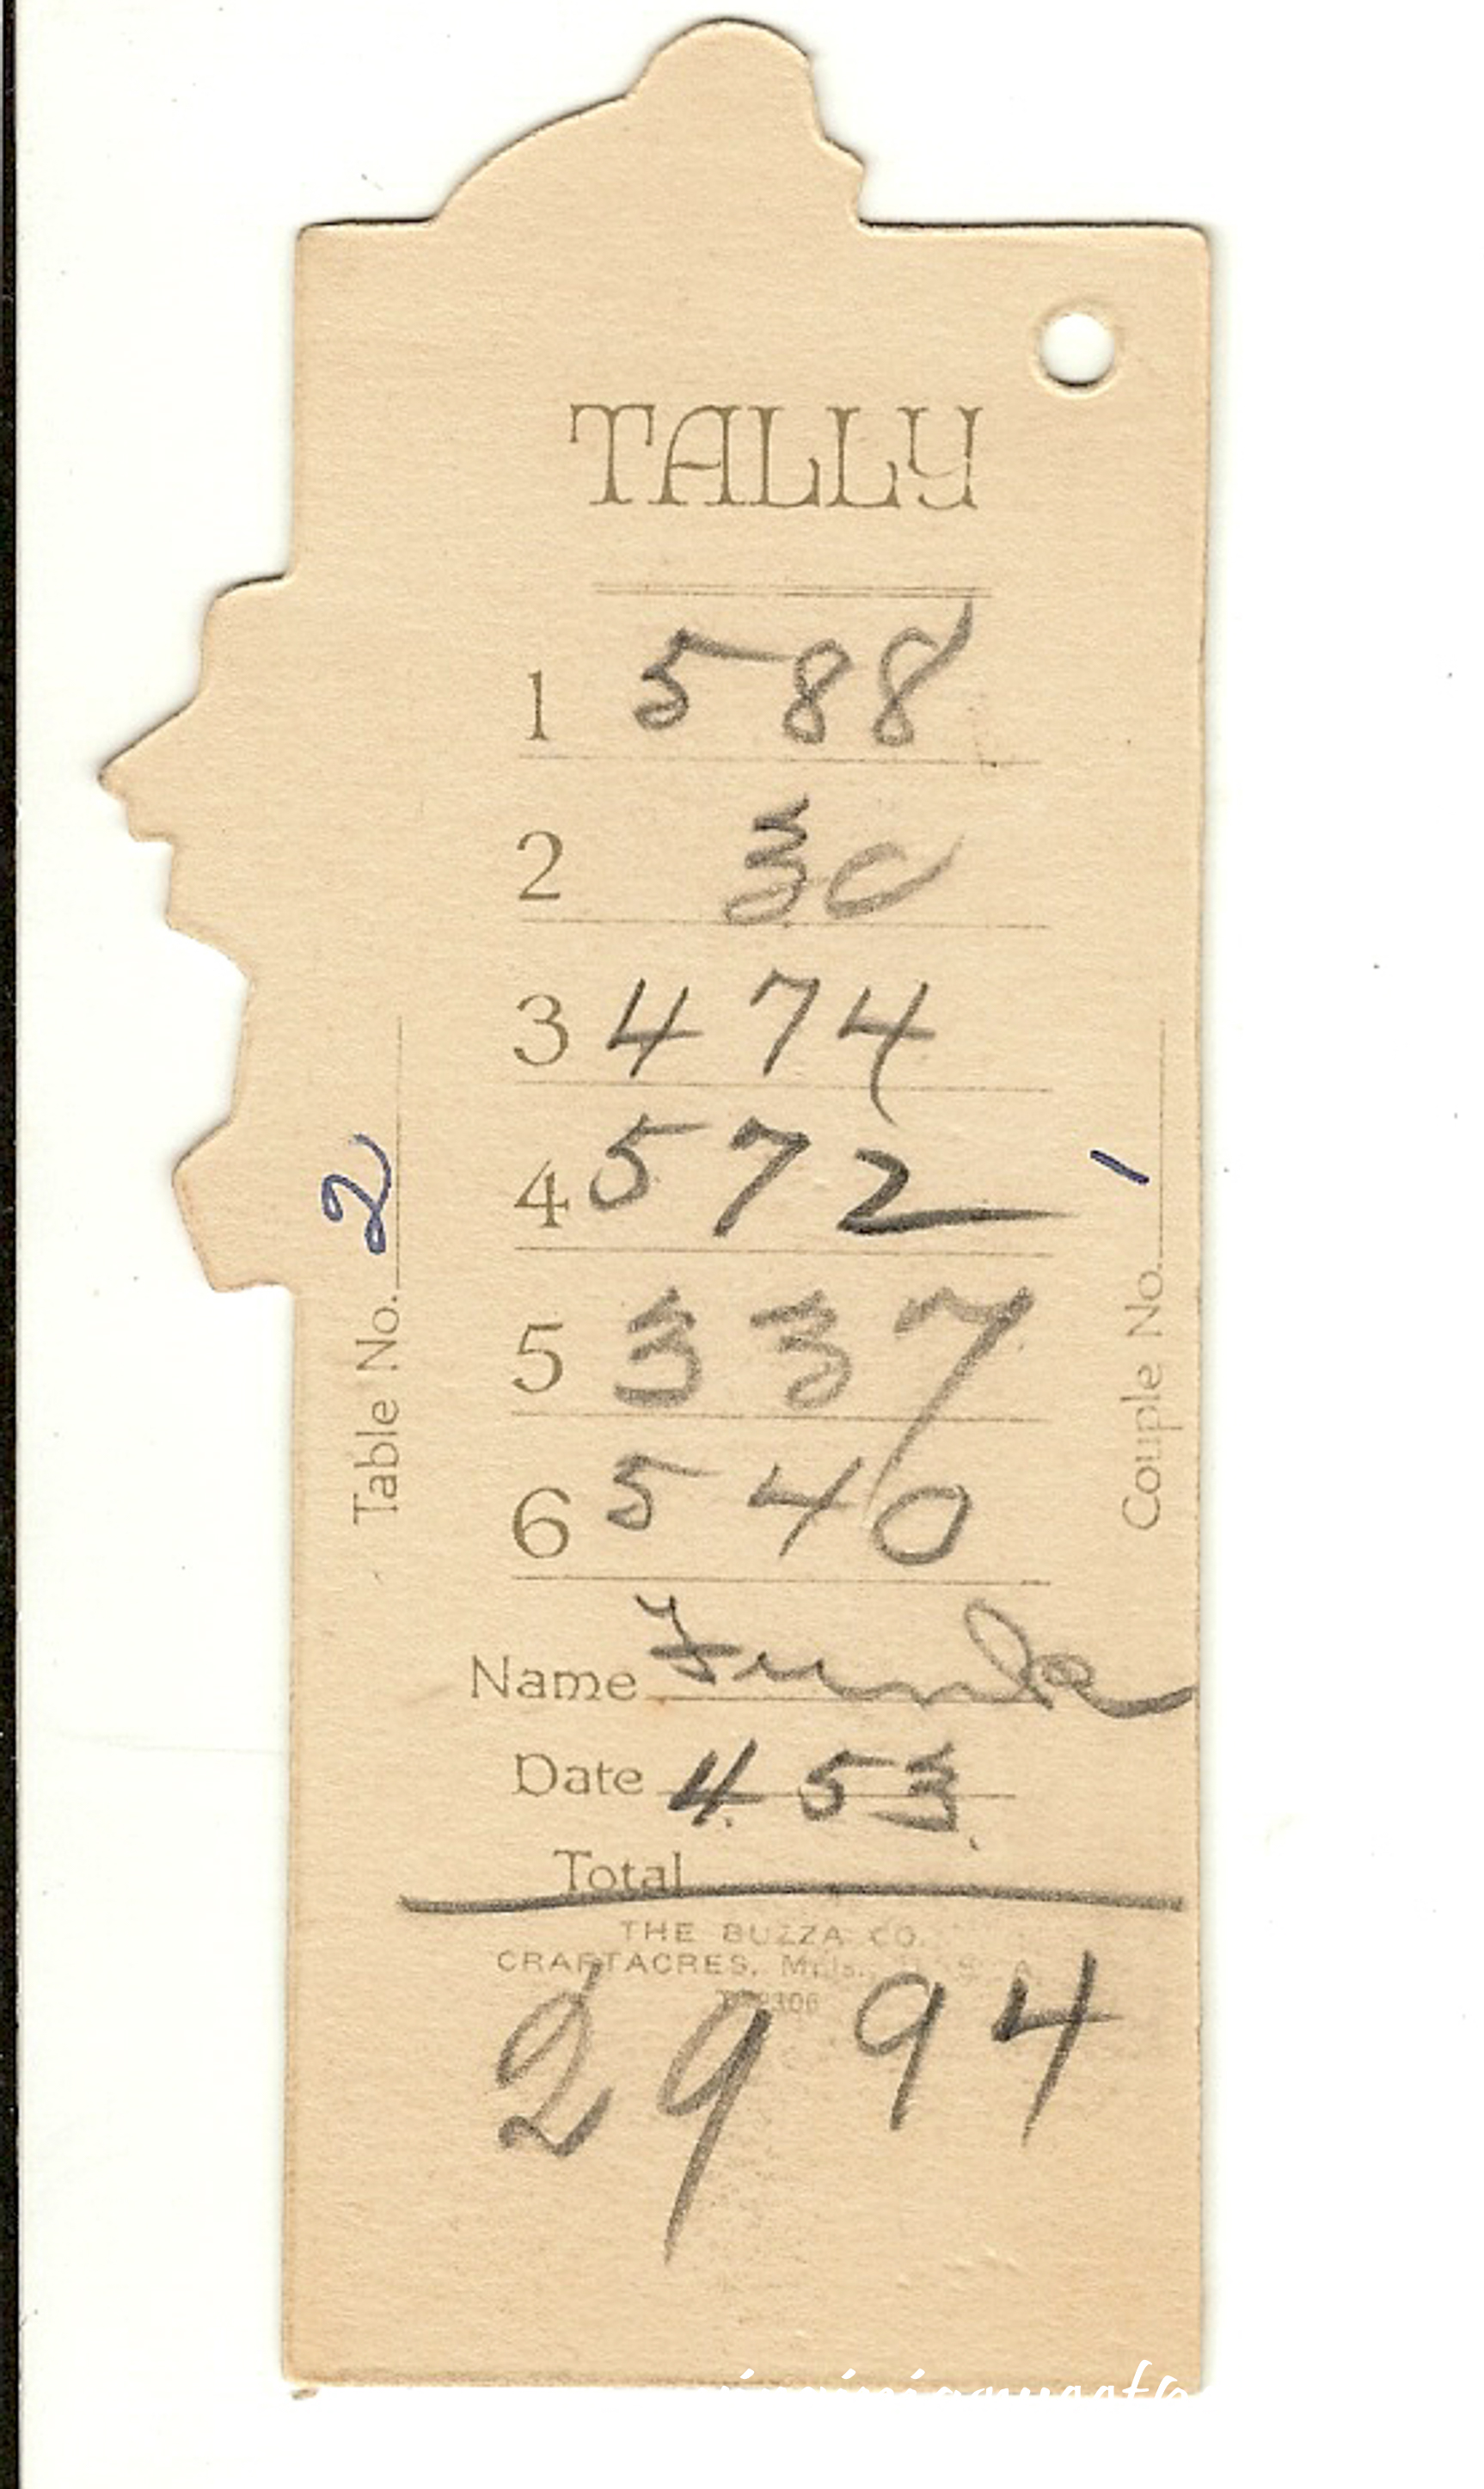 TALLY
1 588
2 30
3 474
4 572
5 337
6 540
Table No. 2
Couple No. 1
Name Funk
Date 453
Total
THE BUZZA CO.
CRAFTACRES.
2994